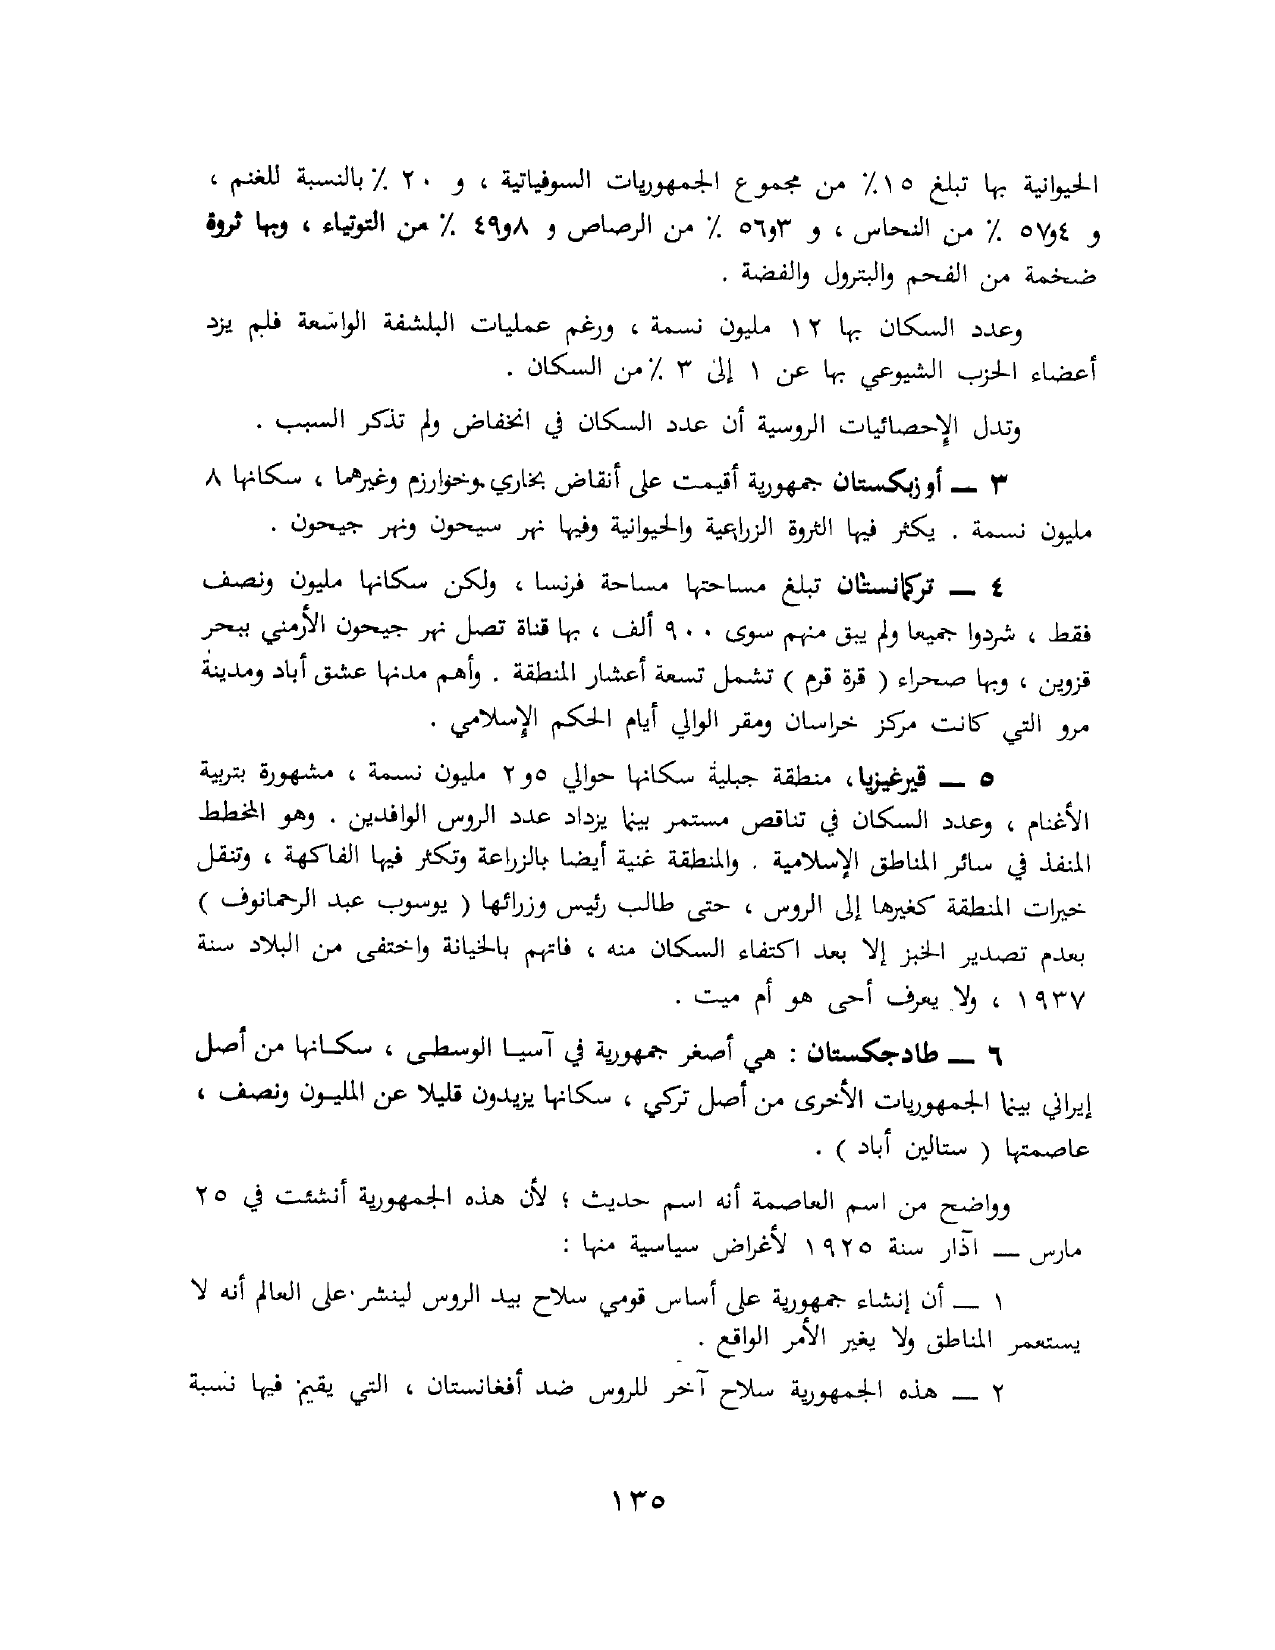 الحيوانية بها تبلغ ١٥٪ من مجموع الجمهوريات السوفياتية ، و ٢٠ ٪ بالنسبة للغنم ،
و ٥٧و٤ ٪ من النحاس ، و ٥٦و٣ ٪ من الرصاص و ٤٩و٨ ٪ من التوتياء ، وبها ثروة
ضخمة من الفحم والبترول والفضة .
وعدد السكان بها ١٢ مليون نسمة ، ورغم عمليات البلشفة الواسعة فلم يزد
أعضاء الحزب الشيوعي بها عن ١ إلى ٣ ٪ من السكان .
وتدل الإحصائيات الروسية أن عدد السكان في انخفاض ولم تذكر السبب .
٣ — أوزبكستان جمهورية أقيمت على أنقاض بخاري وخوارزم وغيرهما ، سكانها ٨
مليون نسمة . يكثر فيها الثروة الزراعية والحيوانية وفيها نهر سيحون ونهر جيحون .
٤ — تركمانستان تبلغ مساحتها مساحة فرنسا ، ولكن سكانها مليون ونصف
فقط ، شردوا جميعا ولم يبق منهم سوى ٩٠٠ ألف ، بها قناة تصل نهر جيحون الأرمني ببحر
قزوين ، وبها صحراء ( قرة قرم ) تشمل تسعة أعشار المنطقة . وأهم مدنها عشق أباد ومدينة
مرو التي كانت مركز خراسان ومقر الوالي أيام الحكم الإسلامي .
٥ — قيرغيزيا ، منطقة جبلية سكانها حوالي ٢و٥ مليون نسمة ، مشهورة بتربية
الأغنام ، وعدد السكان في تناقص مستمر بينما يزداد عدد الروس الوافدين . وهو المخطط
المنفذ في سائر المناطق الإسلامية . والمنطقة غنية أيضا بالزراعة وتكثر فيها الفاكهة ، وتنقل
خيرات المنطقة كغيرها إلى الروس ، حتى طالب رئيس وزرائها ( يوسوب عبد الرحمانوف )
بعدم تصدير الخبز إلا بعد اكتفاء السكان منه ، فاتهم بالخيانة واختفى من البلاد سنة
١٩٣٧ ، ولا يعرف أحى هو أم ميت .
٦ — طادجكستان : هي أصغر جمهورية في آسيا الوسطى ، سكانها من أصل
إيراني بينما الجمهوريات الأخرى من أصل تركي ، سكانها يزيدون قليلا عن المليون ونصف ،
عاصمتها ( ستالين أباد ) .
وواضح من اسم العاصمة أنه اسم حديث ؛ لأن هذه الجمهورية أنشئت في ٢٥
مارس — آذار سنة ١٩٢٥ لأغراض سياسية منها :
١ — أن إنشاء جمهورية على أساس قومي سلاح بيد الروس لينشر على العالم أنه لا
يستعمر المناطق ولا يغير الأمر الواقع .
٢ — هذه الجمهورية سلاح آخر للروس ضد أفغانستان ، التي يقيم فيها نسبة
١٣٥